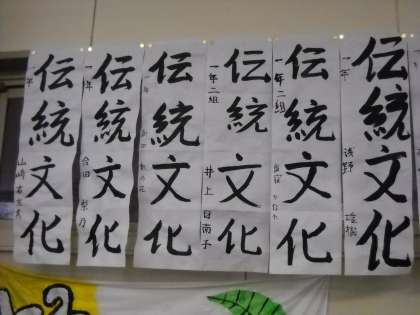 伝統文化
一年
浅野
伝統文化
一年二組
伝統文化
一年二組
井上日南子
伝統文化
伝統文化
一年
合田
伝統文化
一年
山崎